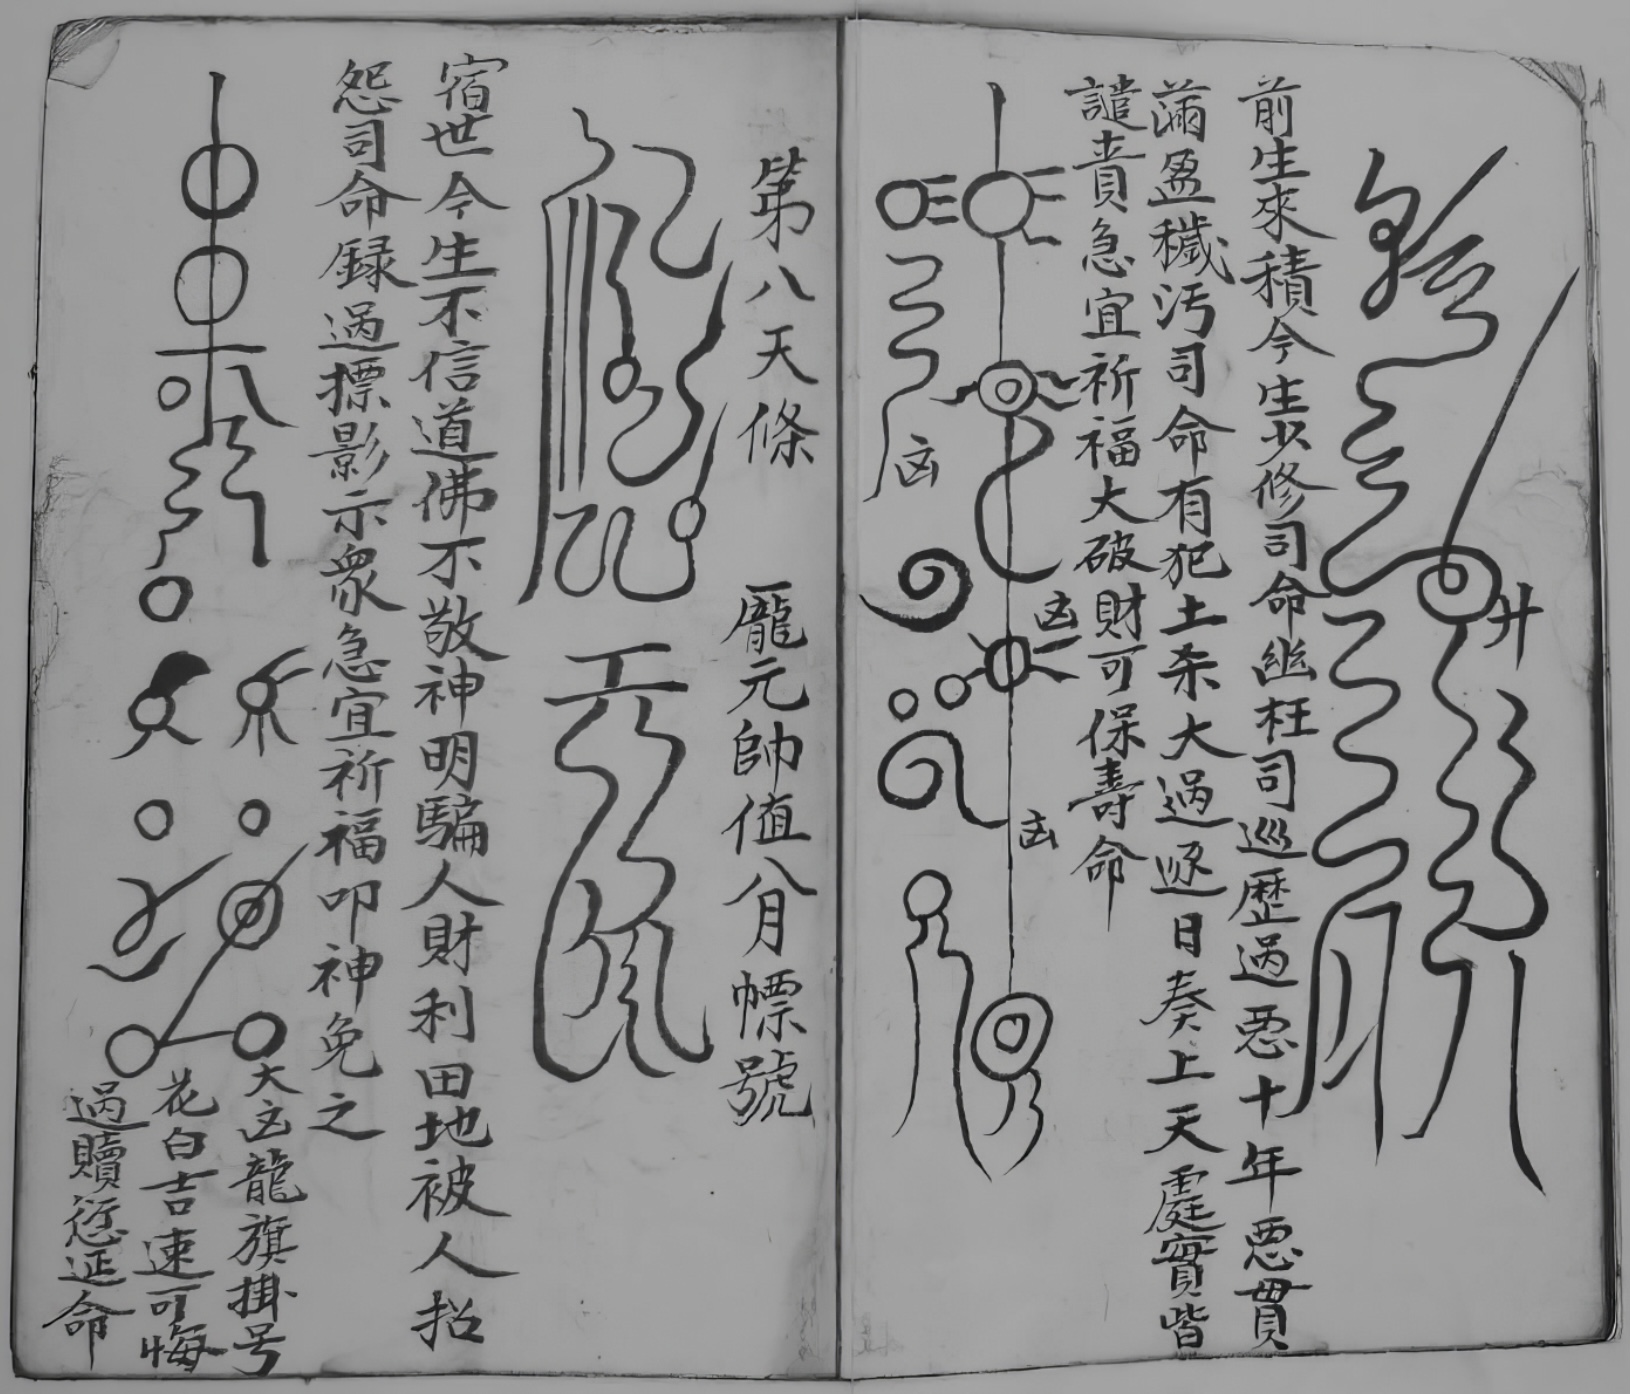 廾
前生來積今生少修司命幽枉司巡歷過惡十年惡貫
滿盈穢污司命有犯土杀大過逐日奏上天霆實皆
譴責急宜祈福大破財可保壽命
凶
凶
凶
第八天條 龐元帥值八月幖號
宿世今生不信道佛不敬神明騙人財利田地被人招
怨司命録過摽影示衆急宜祈福叩神免之
大凶龍旗掛号
花白吉速可悔
過贖愆延命